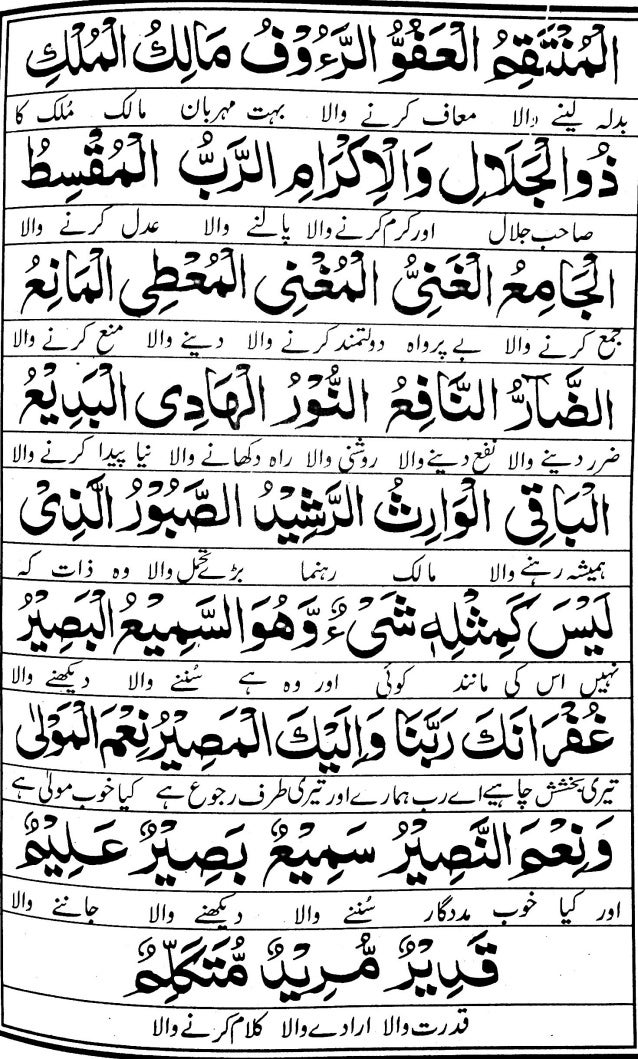 الْمُنْتَقِمُ الْعَفُوُّ الرَّءُوْفُ مَالِكُ الْمُلْكِ
بدلہ لینے والا معاف کرنے والا بہت مہربان مالک مُلک کا
ذُوالْجَلَالِ وَالْاِكْرَامِ الرَّبُّ الْمُقْسِطُ
صاحب جلال اور کرم کرنے والا پالنے والا عدل کرنے والا
الْجَامِعُ الْغَنِىُّ الْمُغْنِى الْمُعْطِى الْمَانِعُ
جمع کرنے والا بے پرواہ دولتمند کرنے والا دینے والا منع کرنے والا
الضَّآرُّ النَّافِعُ النُّوْرُ الْهَادِى الْبَدِيْعُ
ضرر دینے والا نفع دینے والا روشنی والا راہ دکھانے والا نیا پیدا کرنے والا
الْبَاقِى الْوَارِثُ الرَّشِيْدُ الصَّبُوْرُ الَّذِىْ
ہمیشہ رہنے والا مالک رہنما بڑے تحمل والا وہ ذات کہ
لَيْسَ كَمِثْلِهٖ شَىْءٌ وَّهُوَ السَّمِيْعُ الْبَصِيْرُ
نہیں اس کی مانند کوئی اور وہ ہے سُننے والا دیکھنے والا
غُفْرَانَكَ رَبَّنَا وَاِلَيْكَ الْمَصِيْرُ نِعْمَ الْمَوْلٰى
تیری بخشش چاہیے اے رب ہمارے اور تیری طرف رجوع ہے کیا خوب مولیٰ ہے
وَنِعْمَ النَّصِيْرُ سَمِيْعٌ بَصِيْرٌ عَلِيْمٌ
اور کیا خوب مددگار سُننے والا دیکھنے والا جاننے والا
قَدِيْرٌ مُّرِيْدٌ مُّتَكَلِّمٌ
قدرت والا ارادے والا کلام کرنے والا